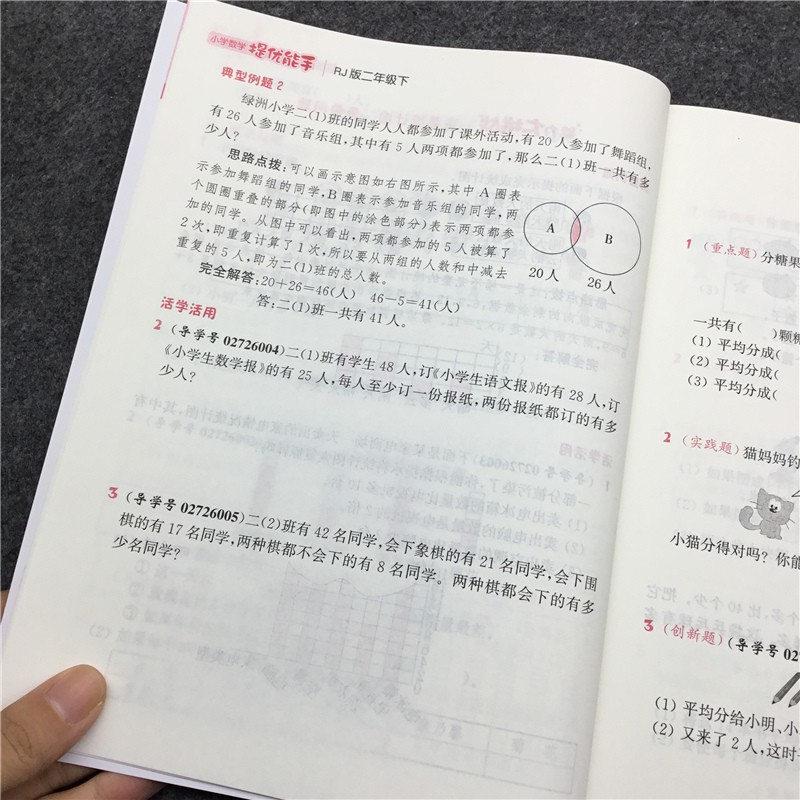 小学数学 提优能手 RJ版二年级下
典型例题2
绿洲小学二(1)班的同学人人都参加了课外活动,有20人参加了舞蹈组,
有26人参加了音乐组,其中有5人两项都参加了,那么二(1)班一共有多
少人?
思路点拨:可以画示意图如右图所示,其中A圈表
示参加舞蹈组的同学,B圈表示参加音乐组的同学,两
个圆圈重叠的部分(即图中的涂色部分)表示两项都参
加的同学。从图中可以看出,两项都参加的5人被算了
2次,即重复计算了1次,所以要从两组的人数和中减去
重复的5人,即为二(1)班的总人数。
A
B
20人
26人
完全解答:20+26=46(人) 46-5=41(人)
答:二(1)班一共有41人。
活学活用
2 (导学号 02726004)二(1)班有学生48人,订《小学生语文报》的有28人,订
《小学生数学报》的有25人,每人至少订一份报纸,两份报纸都订的有多
少人?
3 (导学号 02726005)二(2)班有42名同学,会下象棋的有21名同学,会下围
棋的有17名同学,两种棋都不会下的有8名同学。两种棋都会下的有多
少名同学?
1 (重点题)分糖果
一共有( )颗糖
(1) 平均分成(
(2) 平均分成(
(3) 平均分成(
2 (实践题)猫妈妈钓
小猫分得对吗?你能
3 (创新题)(导学号 02
(1) 平均分给小明、小
(2) 又来了2人,这时